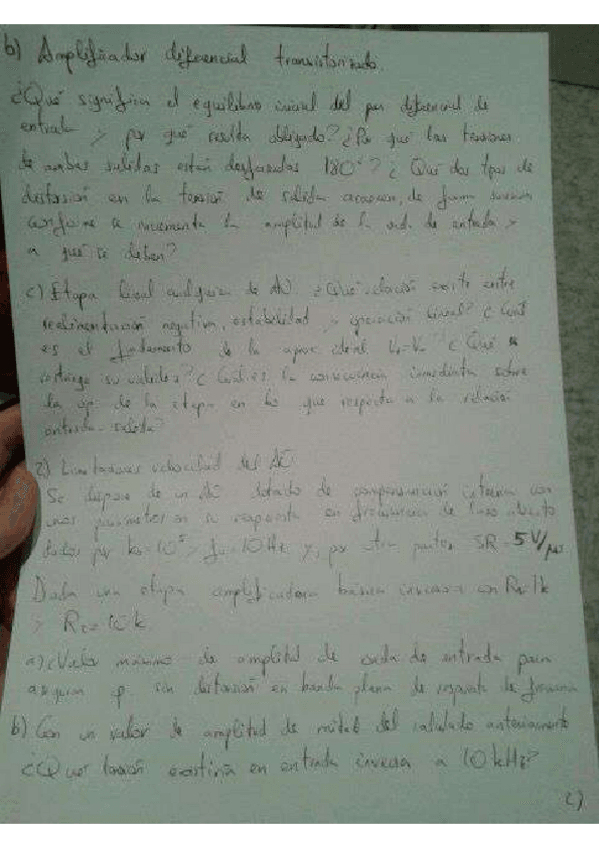 b) Amplificador diferencial transistorizado.
¿Qué significa el equilibrio inicial del par diferencial de
entrada y por qué resulta obligado? ¿Por qué las tensiones
de ambas salidas están desfasadas 180°? ¿Qué dos tipos de
distorsión en la tensión de salida aparecen, de forma
conforme se incrementa la amplitud de la de entrada y
a qué se deben?
c) Etapa lineal cualquiera de AO ¿Qué relación existe entre
realimentación negativa, estabilidad y operación lineal? ¿Cuál
es el fundamento de la aprox ideal ¿Qué
restringe su validez? ¿Cuál es la consecuencia inmediata sobre
la op de la etapa en lo que respecta a la relación
entrada-salida?
2) Limitadores velocidad del AO
Se dispone de un AO dotado de compensación interna con
unos parámetros en a respuesta en frecuencia de lazo abierto
dados por = 10⁵ y = 10 Hz y, por otra parte, SR = 5V/μs
Dada una etapa amplificadora básica inversora con R₁=1k
y R₂=10k
a) ¿Valor máximo de amplitud de onda de entrada para
sin distorsión en banda plana de respuesta de frecuencia
b) Con un valor de amplitud de mitad del calculado anteriormente
¿Qué tensión existiría en entrada inversa a 10 kHz?
c)